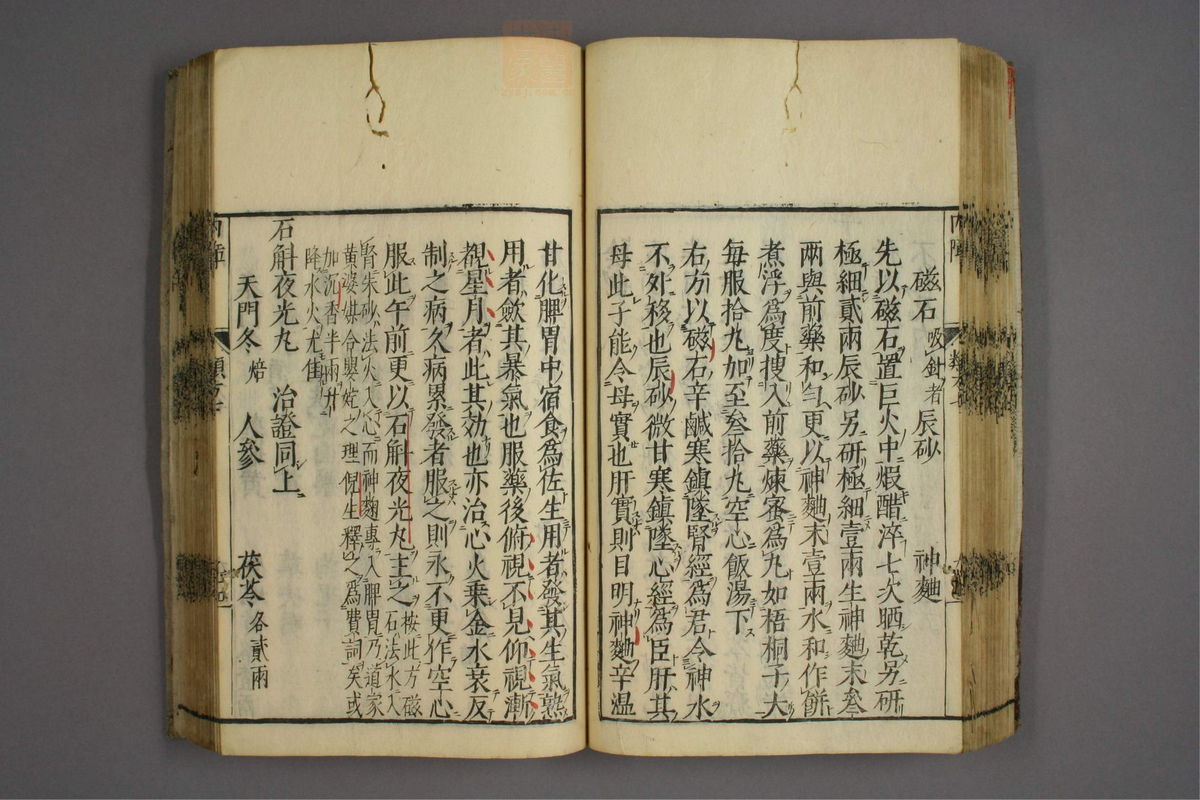 磁石 吸針者 辰砂 神麯
先以磁石置巨火中煆醋淬七次晒乾另研
極細貳兩辰砂另研極細壹兩生神麯末叄
兩與前藥和勻更以神麯末壹兩水和作餅
煮浮為度搜入前藥煉蜜為丸如梧桐子大
每服拾丸加至叄拾丸空心飯湯下
右方以磁石辛鹹寒鎮墜腎經為君令神水
不外移也辰砂微甘寒鎮墜心經為臣肝其
母此子能令母實也肝實則目明神麯辛温
甘化脾胃中宿食為佐生用者發其生氣熟
用者歛其暴氣也服藥後俯視不見仰視漸
覩星月者此其効也亦治心火乗金水衰反
制之病久病累發者服之則永不更作空心
服此午前更以石斛夜光丸主之 按此方磁石法水入
腎朱砂法火入心而神麯專入脾胃乃道家
黄婆媒合嬰姹之理倪生釋之為費詞矣或
加沉香半兩升
降水火尤佳
石斛夜光丸 治證同上
天門冬 焙 人參 茯苓 各貳兩